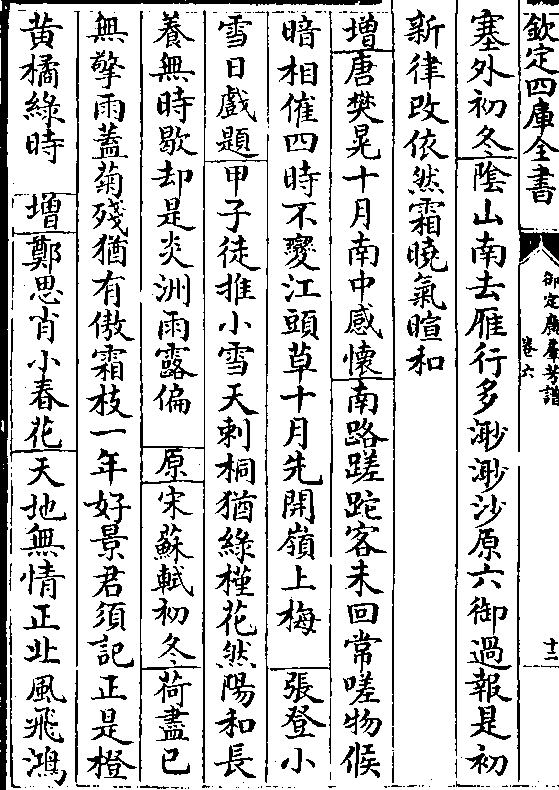 欽定四庫全書
御定廣羣芳譜
卷六
十二
塞外初冬陰山南去雁行多渺渺沙原六御過報是初
新律改依然霜曉氣暄和
增唐樊晃十月南中感懷南路蹉跎客未回常嗟物候
暗相催四時不變江頭草十月先開嶺上梅　張登小
雪日戲題甲子徒推小雪天刺桐猶綠槿花然陽和長
養無時歇却是炎洲雨露偏　原宋蘇軾初冬荷盡已
無擎雨蓋菊殘猶有傲霜枝一年好景君須記正是橙
黄橘綠時　增鄭思肖小春花天地無情正北風飛鴻